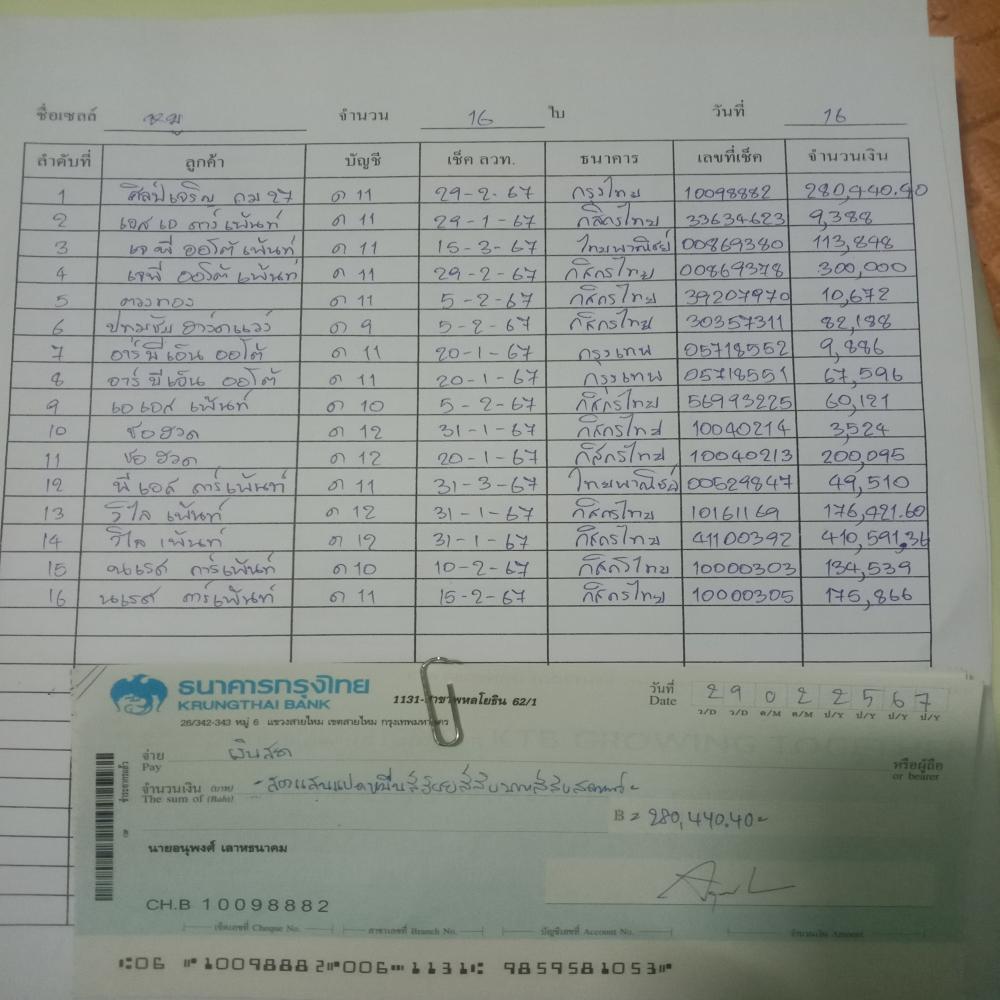 ชื่อเซลล์ หมู จำนวน 16 ใบ วันที่ 16
ลำดับที่ ลูกค้า บัญชี เช็ค ลวท. ธนาคาร เลขที่เช็ค จำนวนเงิน
1 ศิลป์เจริญ กม 27 ด 11 29-2-67 กรุงไทย 10098882 280,440.40
2 เอส เอ คาร์ เพ้นท์ ด 11 29-1-67 กสิกรไทย 33634623 9,388
3 เจ พี ออโต้ เพ้นท์ ด 11 15-3-67 ไทยพาณิชย์ 00869380 113,848
4 เจพี ออโต้ เพ้นท์ ด 11 29-2-67 กสิกรไทย 00869378 300,000
5 ตวงทอง ด 11 5-2-67 กสิกรไทย 39207970 10,672
6 ปทุมชัย ฮาร์ดแวร์ ด 9 5-2-67 กสิกรไทย 30357311 82,188
7 อาร์ พี เอ็น ออโต้ ด 11 20-1-67 กรุงเทพ 05718552 9,886
8 อาร์ พี เอ็น ออโต้ ด 11 20-1-67 กรุงเทพ 05718551 67,596
9 เอ เอส เพ้นท์ ด 10 5-2-67 กสิกรไทย 56993225 60,121
10 ช่อ ฮวด ด 12 31-1-67 กสิกรไทย 10040214 3,524
11 ช่อ ฮวด ด 12 20-1-67 กสิกรไทย 10040213 200,095
12 พี เอส คาร์ เพ้นท์ ด 11 31-3-67 ไทยพาณิชย์ 00529847 49,510
13 วิไล เพ้นท์ ด 12 31-1-67 กสิกรไทย 10161169 176,421.60
14 วิไล เพ้นท์ ด 12 31-1-67 กสิกรไทย 41100392 410,591.36
15 นเรศ คาร์ เพ้นท์ ด 10 10-2-67 กสิกรไทย 10000303 134,539
16 นเรศ คาร์ เพ้นท์ ด 11 15-2-67 กสิกรไทย 10000305 175,866
ธนาคารกรุงไทย
KRUNGTHAI BANK
1131-สาขาพหลโยธิน 62/1
26/342-343 หมู่ 6 แขวงสายไหม เขตสายไหม กรุงเทพมหานคร
วันที่ Date 2 9 0 2 2 5 6 7
ว/D ว/D ด/M ด/M ป/Y ป/Y ป/Y ป/Y
จ่าย Pay เงินสด หรือผู้ถือ or bearer
จำนวนเงิน (บาท) The sum of (Baht) - สองแสนแปดหมื่นสี่ร้อยสี่สิบบาทสี่สิบสตางค์ -
B = 280,440.40 =
นายอนุพงศ์ เลาหธนาคม
CH.B 10098882
เช็คเลขที่ Cheque No. สาขาเลขที่ Branch No. บัญชีเลขที่ Account No. จำนวนเงิน Amount
⑆06 ⑈10098882⑈006⑉1131⑆ 9859581053⑈